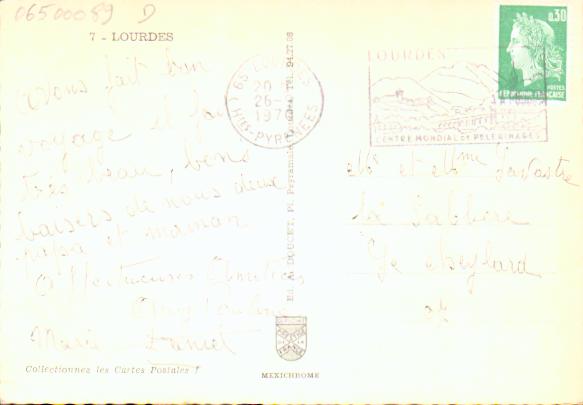 06500089 D
7 - LOURDES
Avons fait bon
voyage il fait
très beau, bons
baisers de nous deux
papa et maman
Affectueuses Amitiés
Marie
Collectionnez les Cartes Postales !
Ed. A. DOUCET, Pl. Peyramale, Lourdes, Tél. 94.27.08
MEXICHROME
65 LOURDES
20
26-
197
(HTES-PYRENEES)
LOURDES
CENTRE MONDIAL DE PELERINAGES
0,30
POSTES
REPUBLIQUE FRANÇAISE
Mr et Mme Lavastre
La Sablière
Le Cheylard
07